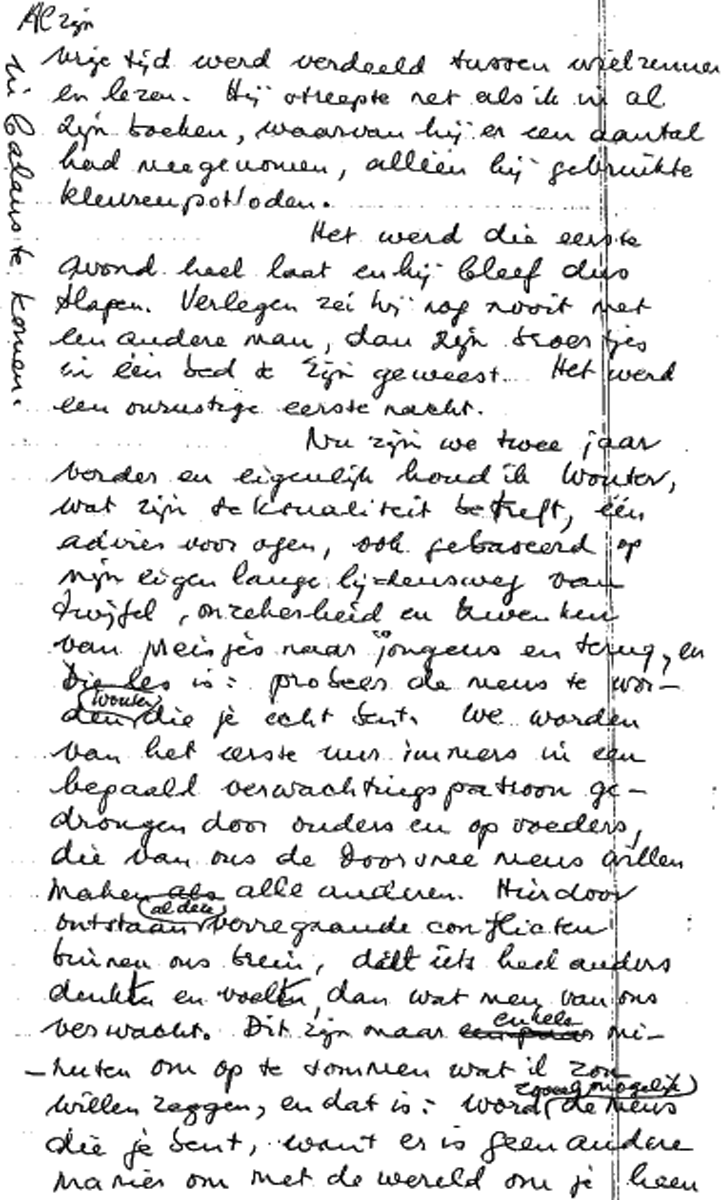 Al zijn
vrije tijd werd verdeeld tussen wielrennen
en lezen. Hij streepte net als ik in al
zijn boeken, waarvan hij er een aantal
had meegenomen, alléén hij gebruikte
kleurenpotloden.
Het werd die eerste
avond heel laat en hij bleef dus
slapen. Verlegen zei hij nog nooit met
een andere man, dan zijn broertjes
in één bed te zijn geweest. Het werd
een onrustige eerste nacht.
Nu zijn we twee jaar
verder en eigenlijk houd ik Wouter,
wat zijn seksualiteit betreft, één
advies voor ogen, ook gebaseerd op
mijn eigen lange lijdensweg van
twijfel, onzekerheid en zwenken
van meisjes naar jongens en terug, en
Die les is: probeer de mens te wor-
den Wouter, die je echt bent. We worden
van het eerste uur immers in een
bepaald verwachtingspatroon ge-
drongen door ouders en opvoeders,
die van ons de doorsnee mens willen
maken als alle anderen. Hierdoor
ontstaan al deze verregaande conflicten
binnen ons brein, dàt iets heel anders
denkt en voelt, dan wat men van ons
verwacht. Dit zijn maar een paar enkele mi-
-nuten om op te sommen wat ik zou
willen zeggen, en dat is: word zoveel mogelijk de mens
die je bent, want er is geen andere
manier om met de wereld om je heen
in balans te komen.